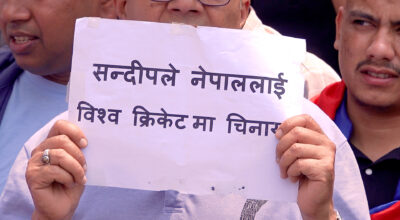 सन्दीपले नेपाललाई
विश्व क्रिकेटमा